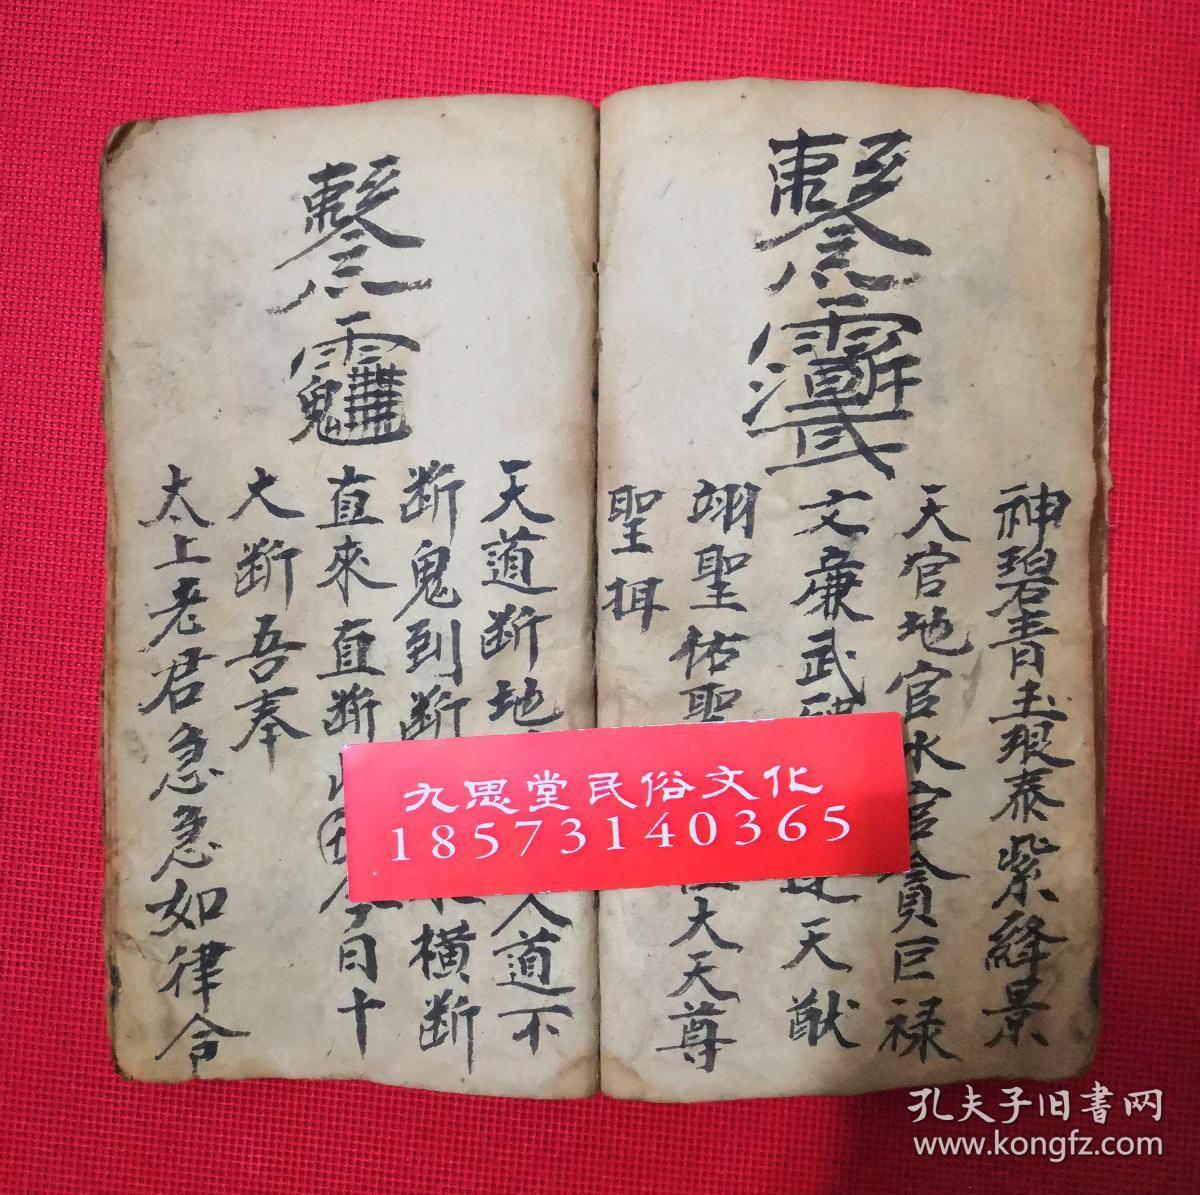 神碧青圭琅泰紫絳景
天官地官水官貪巨禄
文廉武 天猷
翊聖佑聖 大天尊
聖揖
天道断地 人道不
断鬼到断 横断
直來直断 今日十
大断吾奉
太上老君急急如律令
九思堂民俗文化
18573140365
孔夫子旧書网
www.kongfz.com